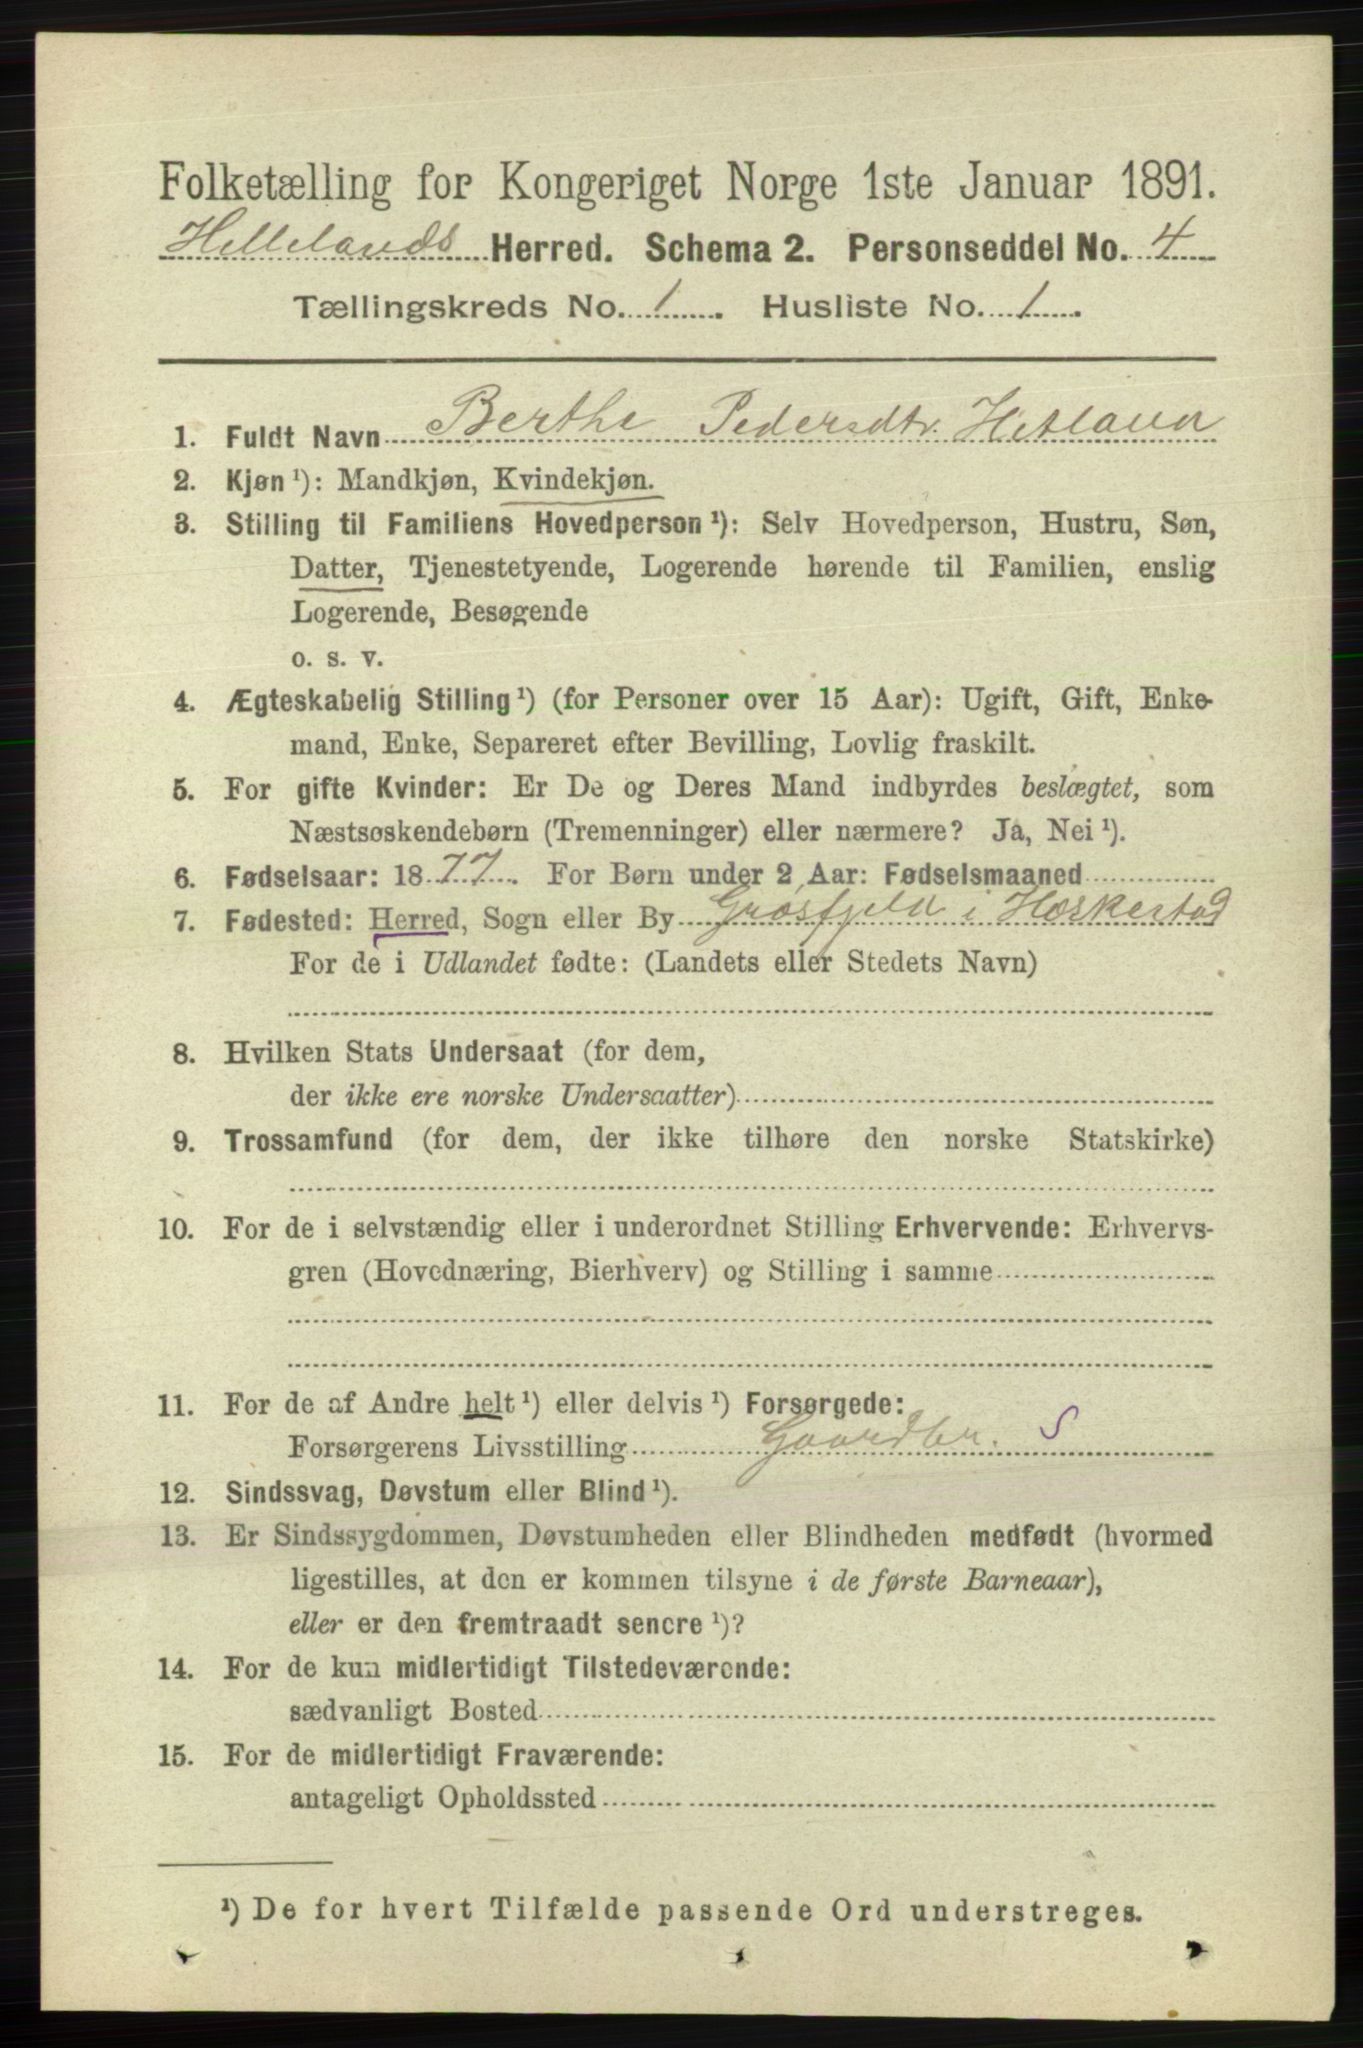 Folketælling for Kongeriget Norge 1ste Januar 1891.
Hellelands Herred. Schema 2. Personseddel No. 4
Tællingskreds No. 1. Husliste No. 1.
1. Fuldt Navn Berthe Pedersdtr. Hetland
2. Kjøn ¹): Mandkjøn, Kvindekjøn.
3. Stilling til Familiens Hovedperson ¹): Selv Hovedperson, Hustru, Søn,
Datter, Tjenestetyende, Logerende hørende til Familien, enslig
Logerende, Besøgende
o. s. v.
4. Ægteskabelig Stilling ¹) (for Personer over 15 Aar): Ugift, Gift, Enke-
mand, Enke, Separeret efter Bevilling, Lovlig fraskilt.
5. For gifte Kvinder: Er De og Deres Mand indbyrdes beslægtet, som
Næstsøskendebørn (Tremenninger) eller nærmere? Ja, Nei ¹).
6. Fødselsaar: 1877. For Børn under 2 Aar: Fødselsmaaned
7. Fødested: Herred, Sogn eller By Grøsfjeld i Hæskestad
For de i Udlandet fødte: (Landets eller Stedets Navn)
8. Hvilken Stats Undersaat (for dem,
der ikke ere norske Undersaatter)
9. Trossamfund (for dem, der ikke tilhøre den norske Statskirke)
10. For de i selvstændig eller i underordnet Stilling Erhvervende: Erhvervs-
gren (Hovednæring, Bierhverv) og Stilling i samme
11. For de af Andre helt ¹) eller delvis ¹) Forsørgede:
Forsørgerens Livsstilling Gaardbr. S
12. Sindssvag, Døvstum eller Blind ¹).
13. Er Sindssygdommen, Døvstumheden eller Blindheden medfødt (hvormed
ligestilles, at den er kommen tilsyne i de første Barneaar),
eller er den fremtraadt senere ¹)?
14. For de kun midlertidigt Tilstedeværende:
sædvanligt Bosted
15. For de midlertidigt Fraværende:
antageligt Opholdssted
¹) De for hvert Tilfælde passende Ord understreges.